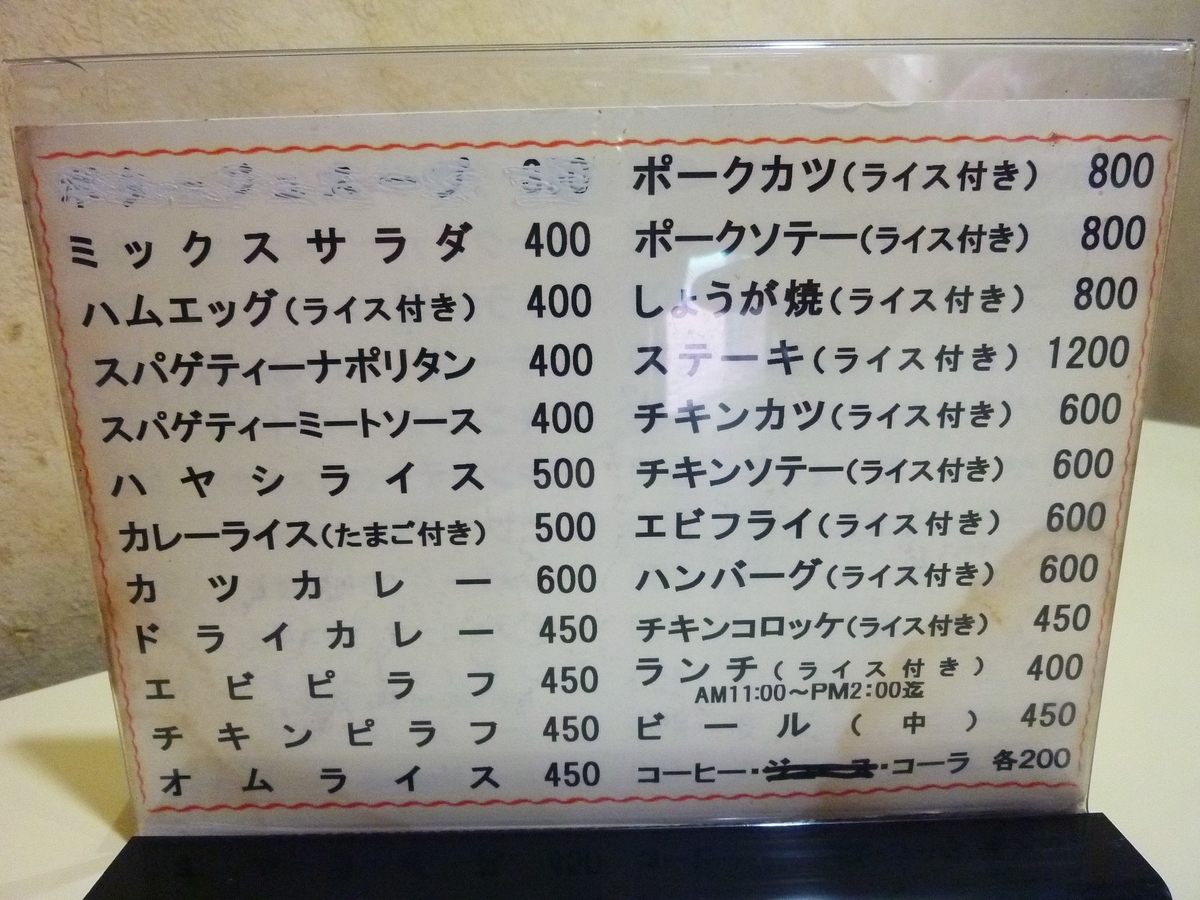 ミックスサラダ 400
ハムエッグ(ライス付き) 400
スパゲティーナポリタン 400
スパゲティーミートソース 400
ハヤシライス 500
カレーライス(たまご付き) 500
カツカレー 600
ドライカレー 450
エビピラフ 450
チキンピラフ 450
オムライス 450
ポークカツ(ライス付き) 800
ポークソテー(ライス付き) 800
しょうが焼(ライス付き) 800
ステーキ(ライス付き) 1200
チキンカツ(ライス付き) 600
チキンソテー(ライス付き) 600
エビフライ(ライス付き) 600
ハンバーグ(ライス付き) 600
チキンコロッケ(ライス付き) 450
ランチ(ライス付き) 400
AM11:00〜PM2:00迄
ビール(中) 450
コーヒー・・コーラ 各200